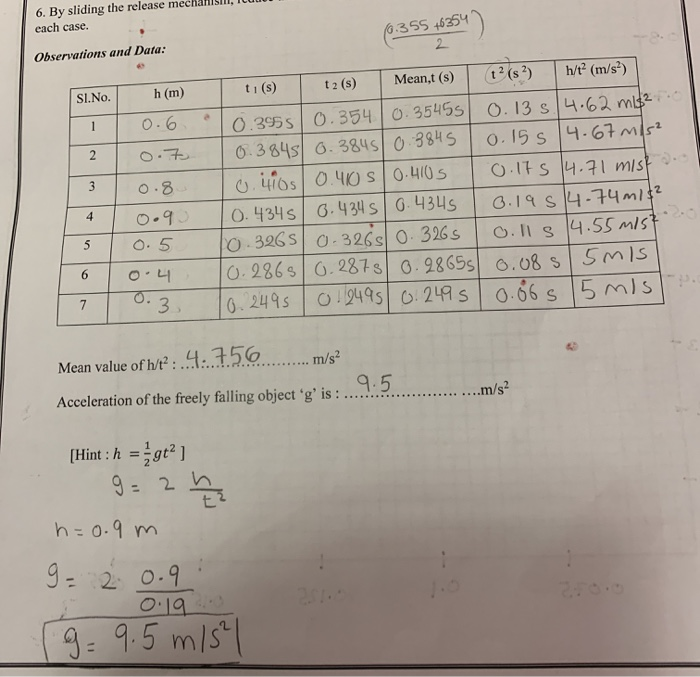 6. By sliding the release
each case.
(0.355 + 0.354 / 2)
Observations and Data:
Sl.No. h (m) t₁ (s) t₂ (s) Mean,t (s) t² (s²) h/t² (m/s²)
1 0.6 0.355s 0.354 0.3545s 0.13 s 4.62 m/s²
2 0.7 0.384s 0.384s 0.384s 0.15 s 4.67 m/s²
3 0.8 0.410s 0.410 s 0.410s 0.17 s 4.71 m/s²
4 0.9 0.434s 0.434s 0.434s 0.19 s 4.74 m/s²
5 0.5 0.326s 0.326s 0.326s 0.11 s 4.55 m/s²
6 0.4 0.286s 0.287s 0.2865s 0.08 s 5 m/s
7 0.3 0.249s 0.249s 0.249 s 0.06 s 5 m/s
Mean value of h/t² : 4.756 m/s²
Acceleration of the freely falling object 'g' is : 9.5 m/s²
[Hint : h = ½gt² ]
g = 2 h/t²
h = 0.9 m
g = 2 0.9/0.19
g = 9.5 m/s²